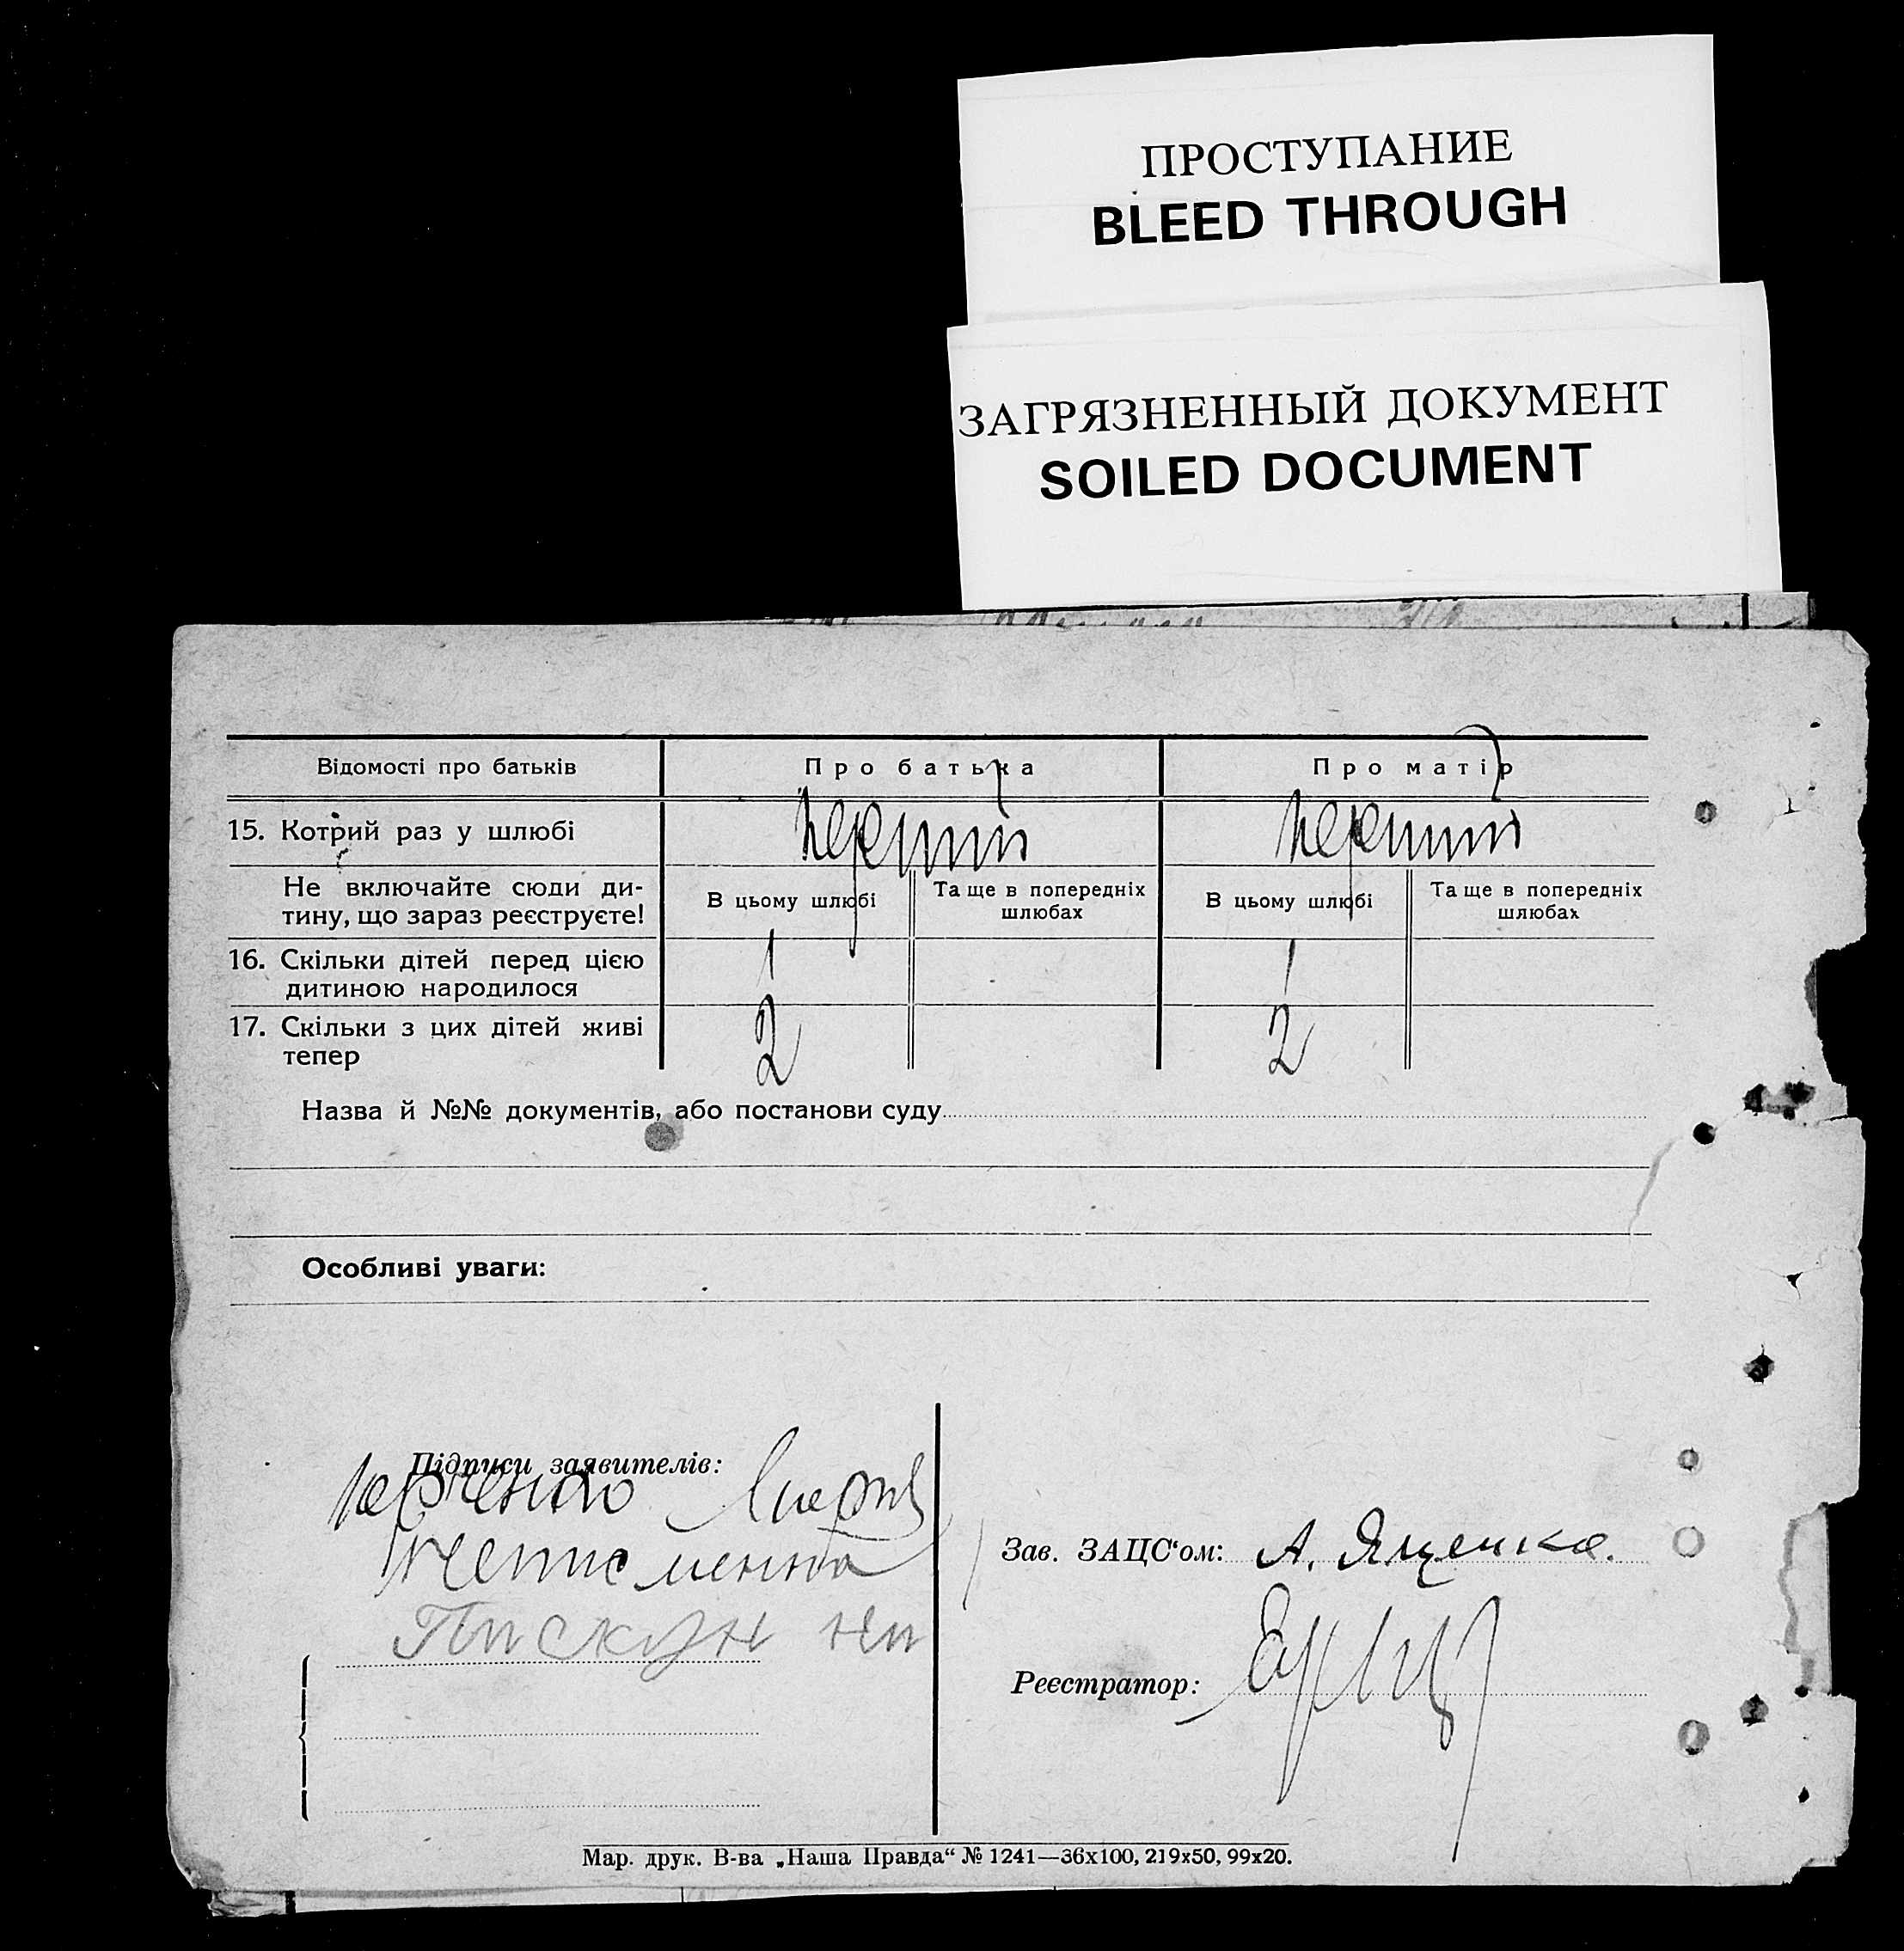 ПРОСТУПАНИЕ
BLEED THROUGH
ЗАГРЯЗНЕННЫЙ ДОКУМЕНТ
SOILED DOCUMENT
Відомості про батьків Про батька Про матір
15. Котрий раз у шлюбі перший перший
Не включайте сюди ди-
тину, що зараз реєструєте!
В цьому шлюбі
Та ще в попередніх
шлюбах
В цьому шлюбі
Та ще в попередніх
шлюбах
16. Скільки дітей перед цією
дитиною народилося
1 1
17. Скільки з цих дітей живі
тепер
2 2
Назва й №№ документів, або постанови суду
Особливі уваги:
Підписи заявителів:
Пискун
Зав. ЗАЦС'ом: А. Яценко.
Реєстратор:
Мар. друк. В-ва „Наша Правда“ № 1241—36х100, 219х50, 99х20.